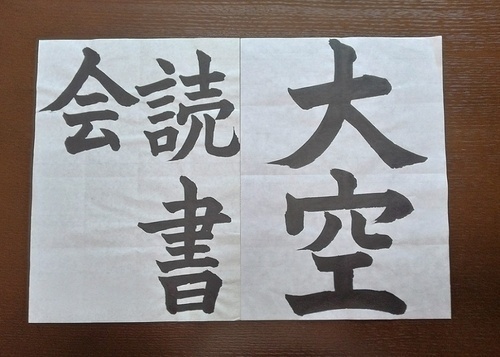 大空
読書
会